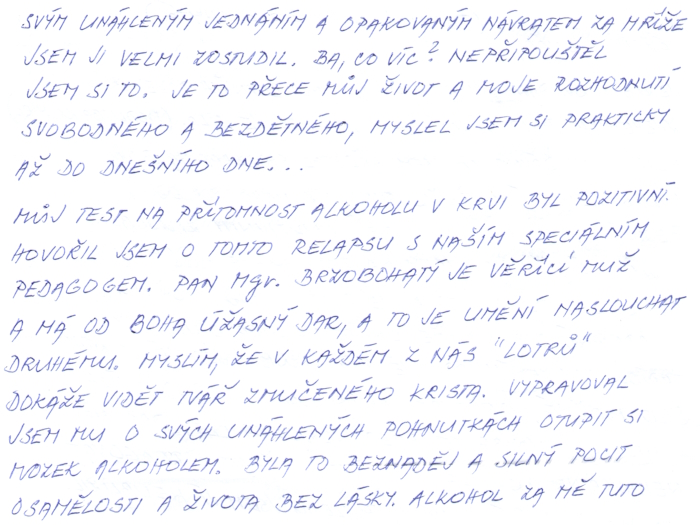 SVÝM UNÁHLENÝM JEDNÁNÍM A OPAKOVANÝM NÁVRATEM ZA MŘÍŽE
JSEM JI VELMI ZOSTUDIL. BA, CO VÍC? NEPŘIPOUŠTĚL
JSEM SI TO. JE TO PŘECE MŮJ ŽIVOT A MOJE ROZHODNUTÍ
SVOBODNÉHO A BEZDĚTNÉHO, MYSLEL JSEM SI PRAKTICKY
AŽ DO DNEŠNÍHO DNE...
MŮJ TEST NA PŘÍTOMNOST ALKOHOLU V KRVI BYL POZITIVNÍ.
HOVOŘIL JSEM O TOMTO RELAPSU S NAŠÍM SPECIÁLNÍM
PEDAGOGEM. PAN Mgr. BRZOBOHATÝ JE VĚŘÍCÍ MUŽ
A MÁ OD BOHA ÚŽASNÝ DAR, A TO JE UMĚNÍ NASLOUCHAT
DRUHÉMU. MYSLÍM, ŽE V KAŽDÉM Z NÁS "LOTRŮ"
DOKÁŽE VIDĚT TVÁŘ ZMUČENÉHO KRISTA. VYPRAVOVAL
JSEM MU O SVÝCH UNÁHLENÝCH POHNUTKÁCH OTUPIT SI
MOZEK ALKOHOLEM. BYLA TO BEZNADĚJ A SILNÝ POCIT
OSAMĚLOSTI A ŽIVOTA BEZ LÁSKY. ALKOHOL ZA MĚ TUTO